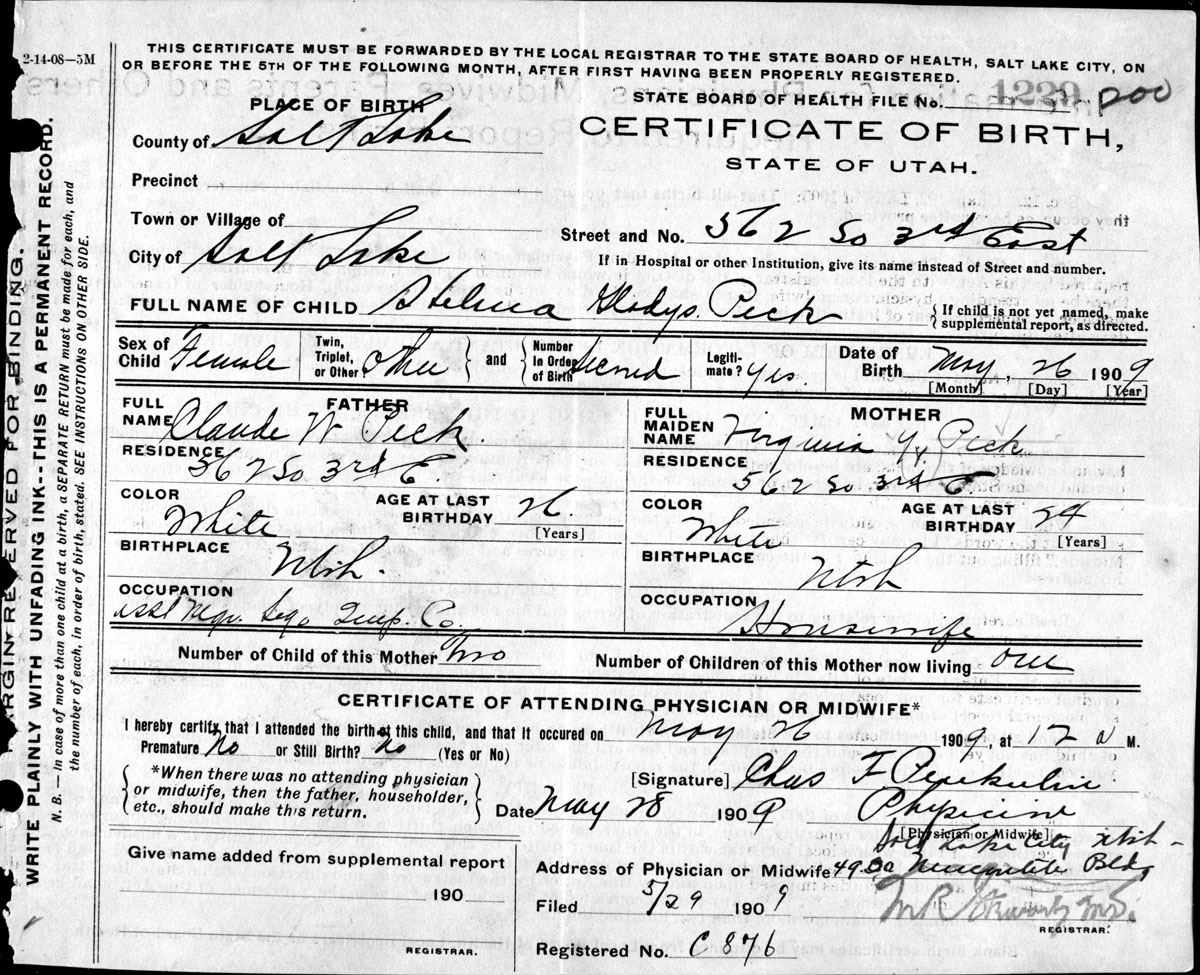 2-14-08—5M
THIS CERTIFICATE MUST BE FORWARDED BY THE LOCAL REGISTRAR TO THE STATE BOARD OF HEALTH, SALT LAKE CITY, ON
OR BEFORE THE 5TH OF THE FOLLOWING MONTH, AFTER FIRST HAVING BEEN PROPERLY REGISTERED.
PLACE OF BIRTH
STATE BOARD OF HEALTH FILE No. 1229 1200
County of Salt Lake
CERTIFICATE OF BIRTH,
STATE OF UTAH.
Precinct
Town or Village of
Street and No. 562 So 3rd East
City of Salt Lake
If in Hospital or other Institution, give its name instead of Street and number.
FULL NAME OF CHILD Gladys. Peck
If child is not yet named, make
supplemental report, as directed.
Sex of Child Female
Twin, Triplet, or Other?
and
Number In Order of Birth Second
Legiti- mate? yes.
Date of Birth May, 26 1909
[Month] [Day] [Year]
FATHER
FULL NAME Claude W Peck.
RESIDENCE
562 So 3rd E.
COLOR
White
AGE AT LAST BIRTHDAY 26.
[Years]
BIRTHPLACE
Utah.
OCCUPATION
asst Mgr. Sego Co.
MOTHER
FULL MAIDEN NAME Virginia Y. Peck
RESIDENCE
562 So 3rd E
COLOR
White
AGE AT LAST BIRTHDAY 24
[Years]
BIRTHPLACE
Utah
OCCUPATION
Housewife
Number of Child of this Mother Two
Number of Children of this Mother now living one
CERTIFICATE OF ATTENDING PHYSICIAN OR MIDWIFE*
I hereby certify that I attended the birth of this child, and that it occured on May 26 1909, at 12 a M.
Premature No or Still Birth? No (Yes or No)
*When there was no attending physician
or midwife, then the father, householder,
etc., should make this return.
[Signature] Chas F
Date May 28 1909 Physician
[Physician or Midwife]
Salt Lake City Utah
Address of Physician or Midwife Bldg
Give name added from supplemental report
190
REGISTRAR.
Filed 5/29 1909
REGISTRAR.
Registered No. C 876
MARGIN RESERVED FOR BINDING.
WRITE PLAINLY WITH UNFADING INK--THIS IS A PERMANENT RECORD.
N. B.—In case of more than one child at a birth, a SEPARATE RETURN must be made for each, and
the number of each, in order of birth, stated. SEE INSTRUCTIONS ON OTHER SIDE.